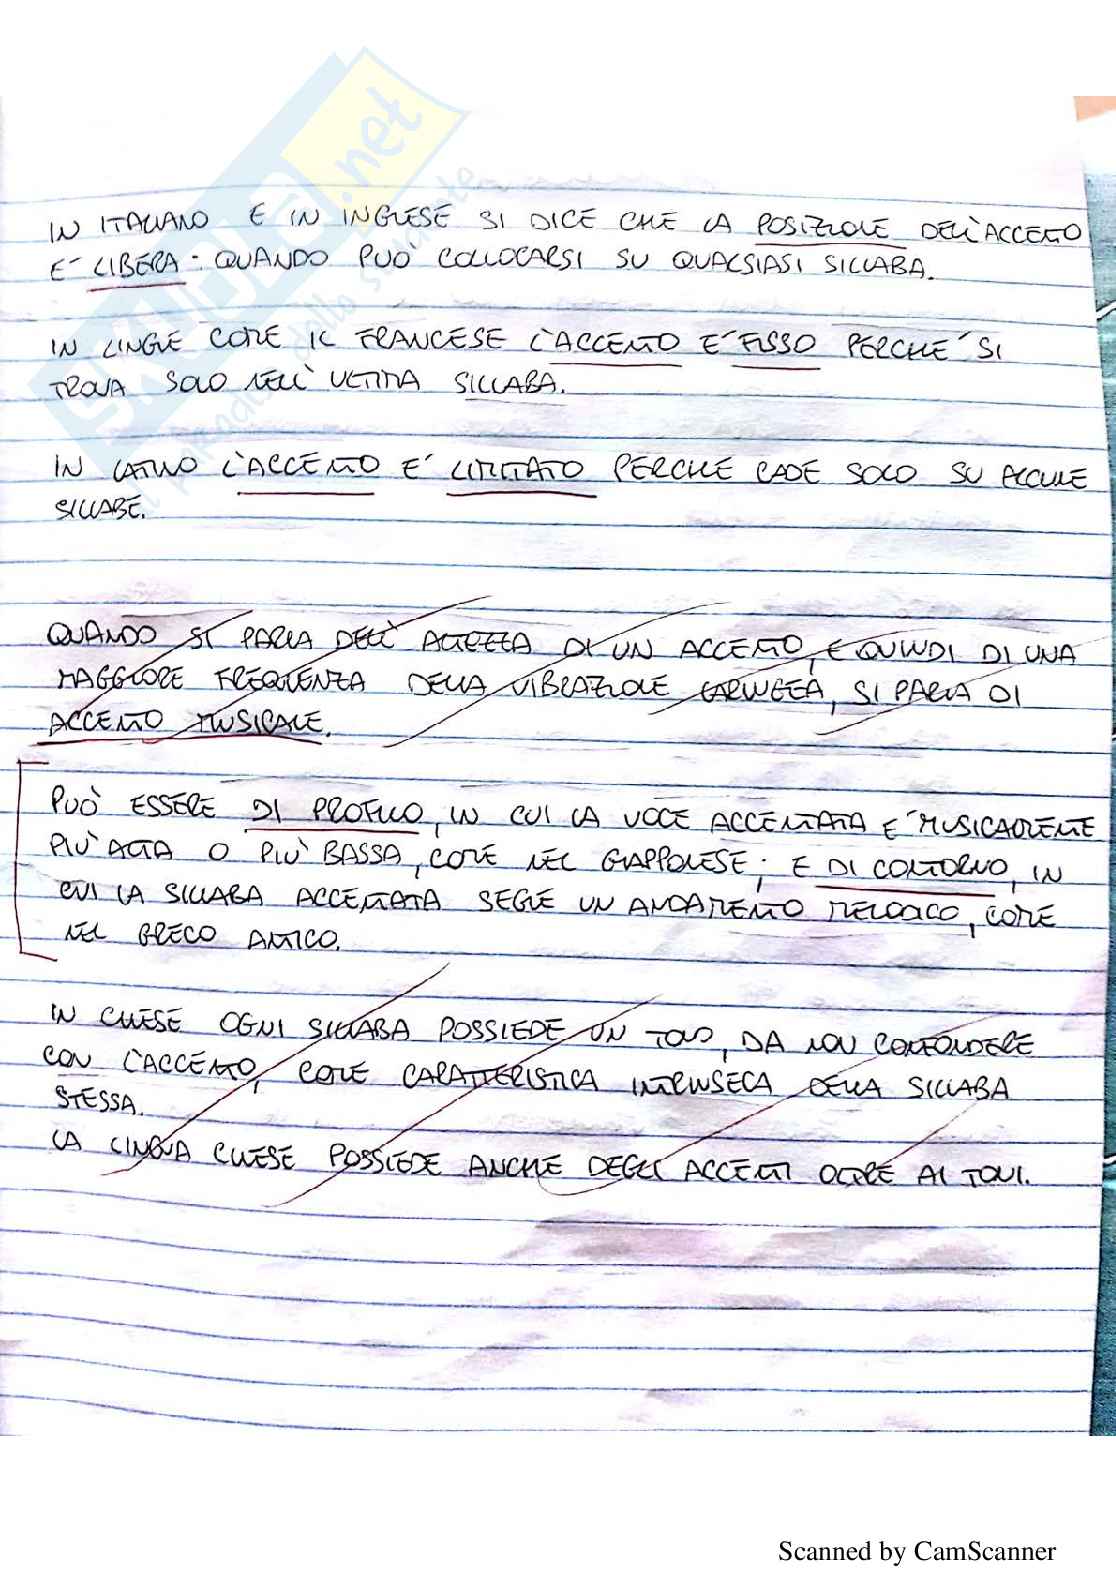 SKUOLA.net
il paradiso dello studente
IN ITALIANO E IN INGLESE SI DICE CHE LA POSIZIONE DELL'ACCENTO
E' LIBERA: QUANDO PUÒ COLLOCARSI SU QUALSIASI SILLABA.
IN LINGUE COME IL FRANCESE L'ACCENTO E' FISSO PERCHE' SI
TROVA SOLO NELL'ULTIMA SILLABA.
IN LATINO L'ACCENTO E' LIMITATO PERCHE CADE SOLO SU ALCUNE
SILLABE.
QUANDO SI PARLA DELL'ALTEZZA DI UN ACCENTO, E QUINDI DI UNA
MAGGIORE FREQUENZA DELLA VIBRAZIONE LARINGEA, SI PARLA DI
ACCENTO MUSICALE.
PUÒ ESSERE DI PROFILO, IN CUI LA VOCE ACCENTATA E' MUSICALMENTE
PIU' ALTA O PIU' BASSA, COME NEL GIAPPONESE; E DI CONTORNO, IN
CUI LA SILLABA ACCENTATA SEGUE UN ANDAMENTO MELODICO, COME
NEL GRECO ANTICO.
IN CINESE OGNI SILLABA POSSIEDE UN TONO, DA NON CONFONDERE
CON L'ACCENTO, COME CARATTERISTICA INTRINSECA DELLA SILLABA
STESSA.
LA LINGUA CINESE POSSIEDE ANCHE DEGLI ACCENTI OLTRE AI TONI.
Scanned by CamScanner